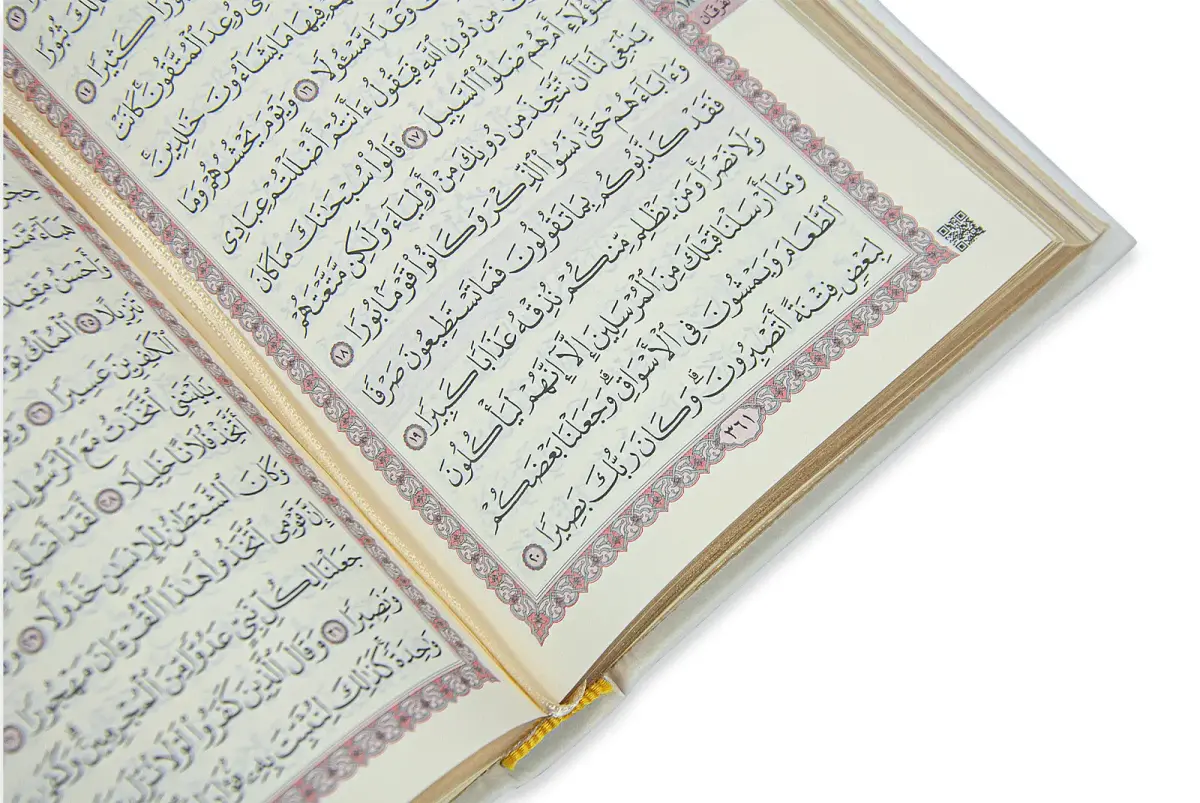 ثُبُورًا
كَثِيرًا ١٤
وُعِدَ ٱلْمُتَّقُونَۚ كَانَتْ
فِيهَا مَا يَشَآءُونَ خَٰلِدِينَۚ
وَعْدًا مَّسْـُٔولًا ١٦ وَيَوْمَ يَحْشُرُهُمْ وَمَا
مِن دُونِ ٱللَّهِ فَيَقُولُ ءَأَنتُمْ أَضْلَلْتُمْ عِبَادِى
هَٰٓؤُلَآءِ أَمْ هُمْ ضَلُّوا۟ ٱلسَّبِيلَ ١٧ قَالُوا۟ سُبْحَٰنَكَ مَا كَانَ
يَنۢبَغِى لَنَآ أَن نَّتَّخِذَ مِن دُونِكَ مِنْ أَوْلِيَآءَ وَلَٰكِن مَّتَّعْتَهُمْ
وَءَابَآءَهُمْ حَتَّىٰ نَسُوا۟ ٱلذِّكْرَ وَكَانُوا۟ قَوْمًۢا بُورًا ١٨
فَقَدْ كَذَّبُوكُم بِمَا تَقُولُونَ فَمَا تَسْتَطِيعُونَ صَرْفًا
وَلَا نَصْرًاۚ وَمَن يَظْلِم مِّنكُمْ نُذِقْهُ عَذَابًا كَبِيرًا ١٩
وَمَآ أَرْسَلْنَا قَبْلَكَ مِنَ ٱلْمُرْسَلِينَ إِلَّآ إِنَّهُمْ لَيَأْكُلُونَ
ٱلطَّعَامَ وَيَمْشُونَ فِى ٱلْأَسْوَاقِۗ وَجَعَلْنَا بَعْضَكُمْ
لِبَعْضٍ فِتْنَةً أَتَصْبِرُونَۗ وَكَانَ رَبُّكَ بَصِيرًا ٢٠
٣٦١
وَأَحْسَنُ
تَنزِيلًا ٢٥ ٱلْمُلْكُ
ٱلْكَٰفِرِينَ عَسِيرًا ٢٦
يَٰلَيْتَنِى ٱتَّخَذْتُ مَعَ ٱلرَّسُولِ
أَتَّخِذْ فُلَانًا خَلِيلًا ٢٨ لَّقَدْ أَضَلَّنِى
وَكَانَ ٱلشَّيْطَٰنُ لِلْإِنسَٰنِ خَذُولًا ٢٩
إِنَّ قَوْمِى ٱتَّخَذُوا۟ هَٰذَا ٱلْقُرْءَانَ مَهْجُورًا ٣٠
جَعَلْنَا لِكُلِّ نَبِىٍّ عَدُوًّا مِّنَ ٱلْمُجْرِمِينَۗ وَكَفَىٰ
وَنَصِيرًا ٣١ وَقَالَ ٱلَّذِينَ كَفَرُوا۟ لَوْلَا نُزِّلَ
وَٰحِدَةًۚ كَذَٰلِكَ لِنُثَبِّتَ بِهِۦ